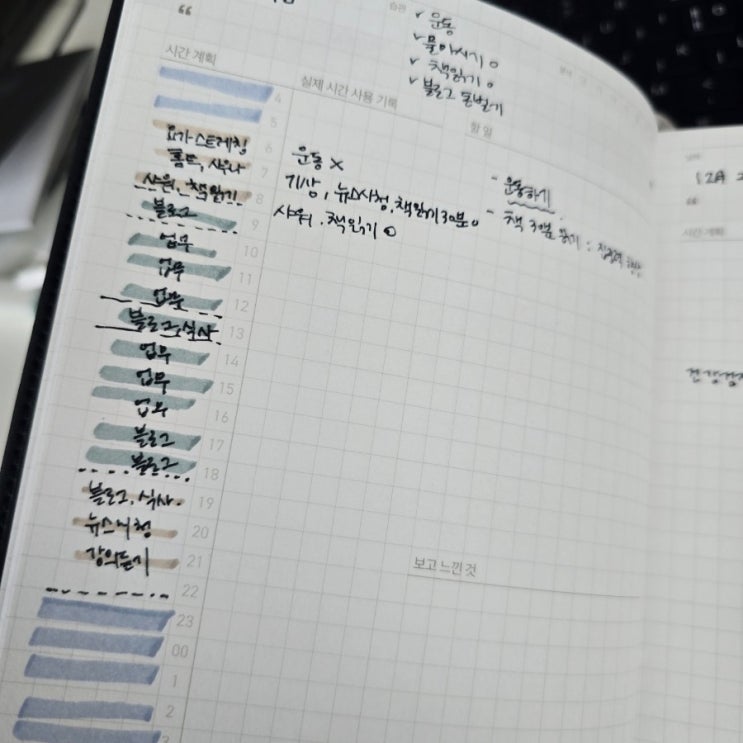 “
습관
✓ 운동
✓ 물마시기 o
✓ 책읽기 o
✓ 블로그 돈벌기
시간 계획
실제 시간 사용 기록
할 일
4
5
요가스트레칭 6
홈트, 샤워나 7
샤워, 책읽기 8
블로그 9
업무 10
업무 11
업무 12
블로그, 식사 13
업무 14
업무 15
업무 16
블로그 17
블로그 18
블로그, 식사. 19
뉴스시청 20
강의듣기 21
22
23
00
1
2
3
운동 ×
기상, 뉴스시청, 책읽기 30분o
샤워. 책읽기 o
- 운동하기
- 책 30분 읽기 :
보고 느낀 것
12A
“
시간 계획
건강검